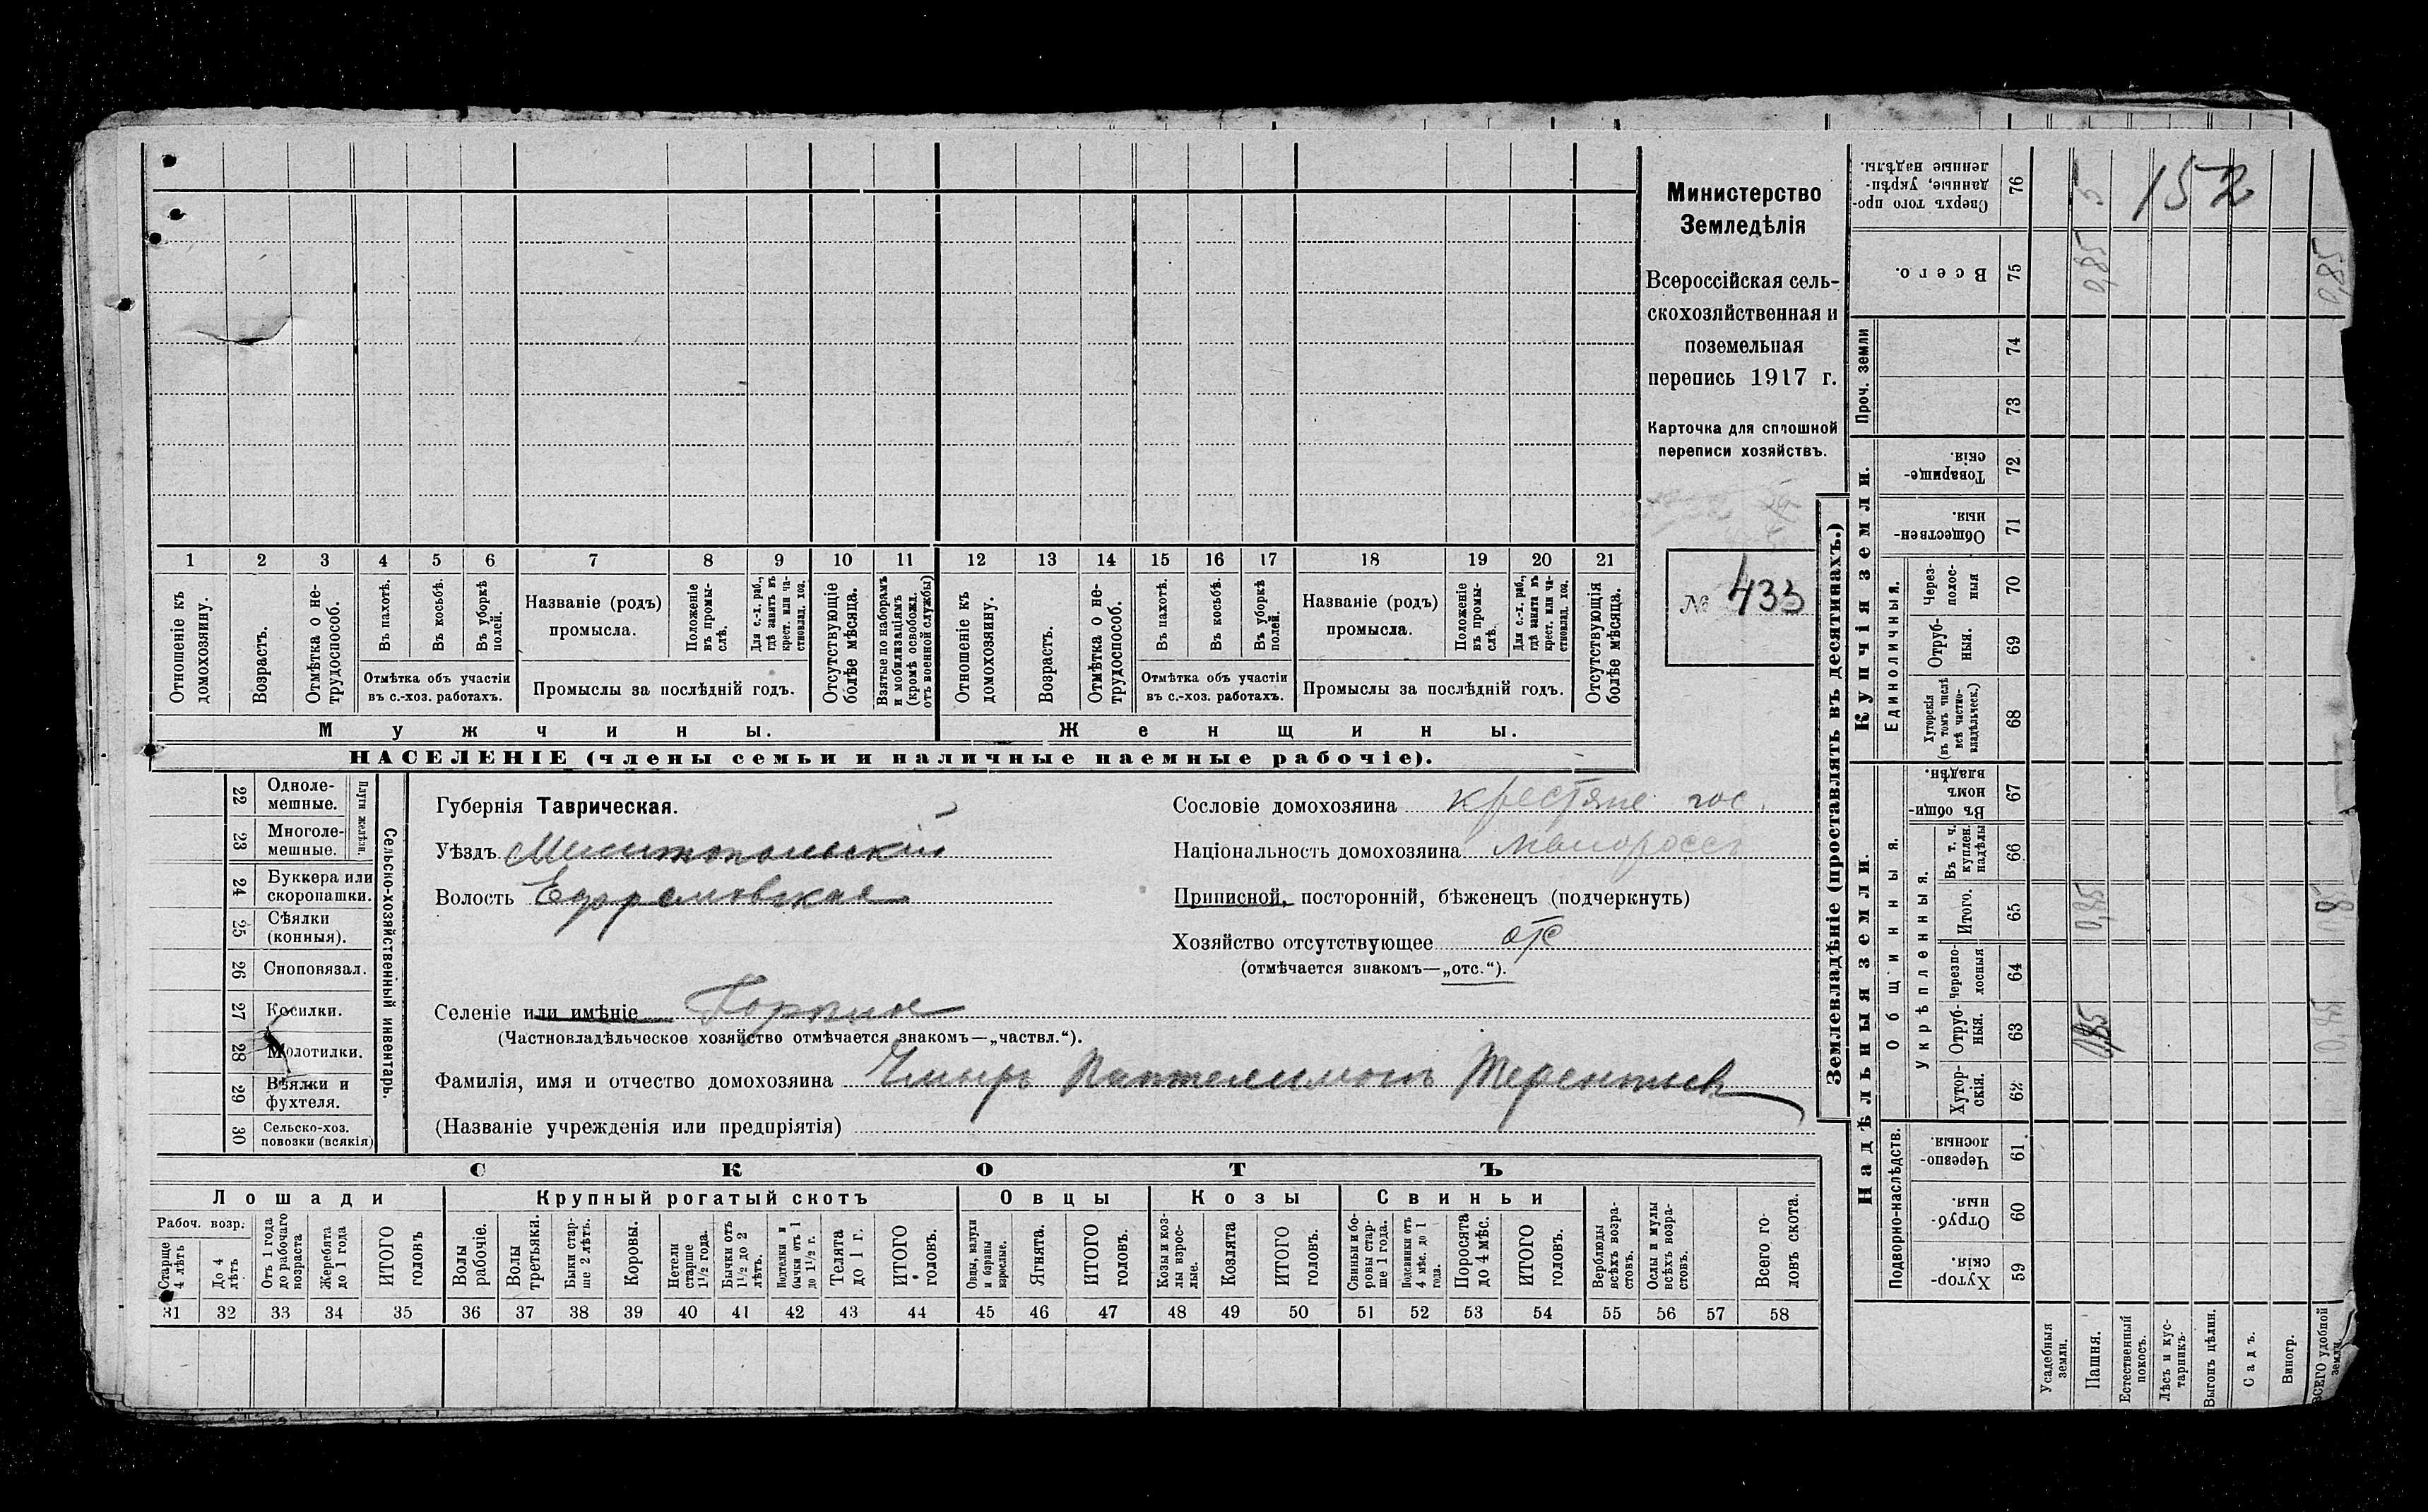 Министерство
Земледѣлія
Всероссійская сель-
скохозяйственная и
поземельная
перепись 1917 г.
Карточка для сплошной
переписи хозяйствъ.
№ 433
1 2 3 4 5 6 7 8 9 10 11 12 13 14 15 16 17 18 19 20 21
Отношеніе къ домохозяину.
Возрастъ.
Отмѣтка о не-трудоспособ.
Въ пахотѣ.
Въ косьбѣ.
Въ уборкѣ полей.
Отмѣтка объ участіи
въ с.-хоз. работахъ.
Названіе (родъ)
промысла.
Положеніе въ промы-слѣ.
Для с.-х. раб., гдѣ занятъ въ крест. или ча-стновлад. хоз.
Промыслы за послѣдній годъ.
Отсутствующіе болѣе мѣсяца.
Взятые по наборамъ и мобилизаціямъ (кромѣ освобожд. отъ военной службы)
Отношеніе къ домохозяину.
Возрастъ.
Отмѣтка о не-трудоспособ.
Въ пахотѣ.
Въ косьбѣ.
Въ уборкѣ полей.
Отмѣтка объ участіи
въ с.-хоз. работахъ.
Названіе (родъ)
промысла.
Положеніе въ промы-слѣ.
Для с.-х. раб., гдѣ занята въ крест. или ча-стновлад. хоз.
Промыслы за послѣдній годъ.
Отсутствующія болѣе мѣсяца.
Мужчины.
Женщины.
НАСЕЛЕНІЕ (члены семьи и наличные наемные рабочіе).
22 Одноле-мешные.
23 Многоле-мешные.
Плуги желѣзн.
24 Буккера или скоропашки.
25 Сѣялки (конныя).
26 Сноповязал.
27 Косилки.
28 Молотилки.
29 Вѣялки и фухтеля.
30 Сельско-хоз. повозки (всякія)
Сельско-хозяйственный инвентарь.
Губернія Таврическая.
Уѣздъ Мелитопольскій
Волость Ефремовская
Сословіе домохозяина крестяне гос.
Національность домохозяина малороссъ
Приписной, посторонній, бѣженецъ (подчеркнуть)
Хозяйство отсутствующее отс
(отмѣчается знакомъ—„отс.“).
Селеніе или имѣніе
(Частновладѣльческое хозяйство отмѣчается знакомъ—„частвл.“).
Фамилія, имя и отчество домохозяина Чмырь Пантелимонъ Терентьев
(Названіе учрежденія или предпріятія)
СКОТЪ
Лошади
Крупный рогатый скотъ
Овцы
Козы
Свиньи
Рабоч. возр.
Старше 4 лѣтъ
До 4 лѣтъ
Отъ 1 года до рабочаго возраста
Жеребята до 1 года
ИТОГО головъ
Волы рабочіе.
Волы третьяки.
Быки стар-ше 2 лѣтъ.
Коровы.
Нетели старше 1½ года.
Бычки отъ 1½ до 2 лѣтъ.
Подтелки и бычки отъ 1 до 1½ г.
Телята до 1 г.
ИТОГО головъ.
Овцы, валухи и бараны взрослые.
Ягнята.
ИТОГО головъ.
Козы и коз-лы взрос-лые.
Козлята
ИТОГО головъ.
Свиньи и бо-ровы стар-ше 1 года.
Подсвинки отъ 4 мѣс. до 1 года.
Поросята до 4 мѣс.
ИТОГО головъ.
Верблюды всѣхъ возра-стовъ.
Ослы и мулы всѣхъ возра-стовъ.
Всего го-ловъ скота.
31 32 33 34 35 36 37 38 39 40 41 42 43 44 45 46 47 48 49 50 51 52 53 54 55 56 57 58
Землевладѣніе (проставлять въ десятинахъ.)
Сверхъ того про-данные, укрѣп-ленные надѣлы. 76 5
152
Всего. 75 0,85 0,85
Проч. земли
74
73
Купчія земли.
Товарище-скія. 72
Обществен-ныя. 71
Единоличныя.
Через-полос-ныя 70
Отруб-ныя. 69
Хуторскія (въ томъ числѣ всѣ частно-владѣльческ.) 68
Надѣльныя земли.
Общинныя.
Въ общи-номъ владѣн. 67
Укрѣпленныя.
Въ т. ч. куплен. надѣлы 66
Итого. 65 0,85 0,85
Черезпо-лосныя 64
Отруб-ныя. 63 0,85 0,85
Хутор-скія. 62
Подворно-наслѣдств.
Черезпо-лосныя. 61
Отруб-ныя. 60
Хутор-скія. 59
Усадебныя земли.
Пашня.
Естественный покосъ.
Лѣсъ и кус-тарникъ.
Выгонъ цѣлин.
Садъ.
Виногр.
ВСЕГО удобной земли.